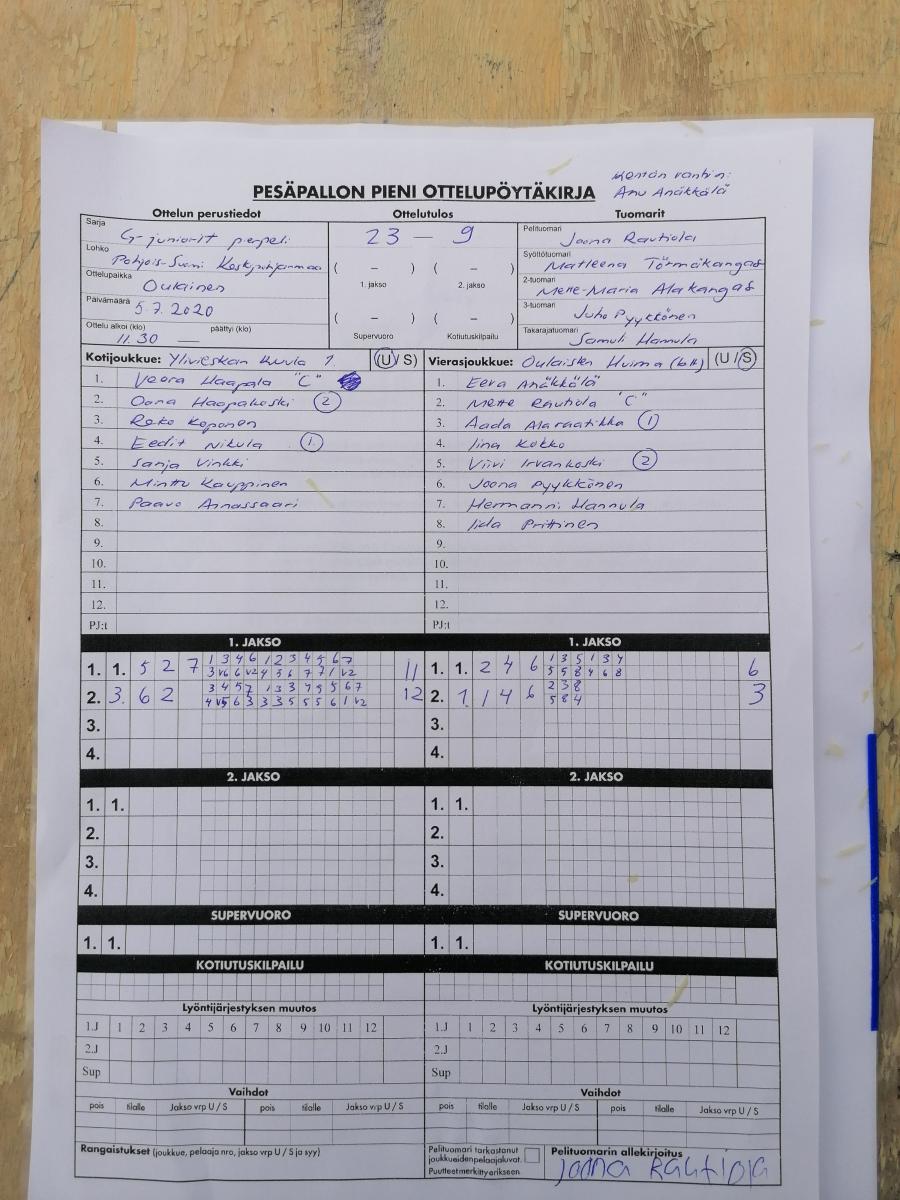 Kentän vanhin:
PESÄPALLON PIENI OTTELUPÖYTÄKIRJA
Anu Anäkkälä
Ottelun perustiedot Ottelutulos Tuomarit
Sarja G-juniorit perpeli
Lohko Pohjois-Suomi Keskipohjanmaa
Ottelupaikka Oulainen
Päivämäärä 5.7.2020
Ottelu alkoi (klo) päättyi (klo)
11.30 —
23 — 9
( – ) ( – )
1. jakso 2. jakso
( – ) ( – )
Supervuoro Kotiutuskilpailu
Pelituomari Joona Rautiola
Syöttötuomari Matleena Törmäkangas
2-tuomari Mette-Maria Alakangas
3-tuomari Juho Pyykkönen
Takarajatuomari Samuli Hannula
Kotijoukkue: Ylivieskan Kuula 1 (U/S)
1. Veera Haapala "C"
2. Oona Haapakoski 2
3. Reko Koponen
4. Eedit Nikula 1.
5. Sanja Vinkki
6. Minttu Kauppinen
7. Paavo Ainassaari
8.
9.
10.
11.
12.
PJ:t
Vierasjoukkue: Oulaisten Huima (U/S)
1. Eeva Anäkkälä
2. Mette Rautiola "C"
3. Aada Alaraatikka 1
4. Iina Kokko
5. Viivi Irvankoski 2
6. Joona Pyykkönen
7. Hermanni Hannula
8. Iida Prittinen
9.
10.
11.
12.
1. JAKSO 1. JAKSO
1. 1. 5 2 7 1 3 4 6 1 2 3 4 5 6 7 11
3 V6 6 V2 4 5 6 7 7 1 V2
2. 3. 6 2 3 4 5 7 1 3 3 4 5 5 6 7 12
4 V5 6 3 3 3 5 5 5 6 1 V2
3.
4.
1. 1. 2 4 6 1 3 5 1 3 4 6
5 5 8 4 6 8
2. 1. 1 4 6 2 3 8 3
5 8 4
3.
4.
2. JAKSO 2. JAKSO
1. 1. 1. 1.
2. 2.
3. 3.
4. 4.
SUPERVUORO SUPERVUORO
1. 1. 1. 1.
KOTIUTUSKILPAILU KOTIUTUSKILPAILU
Lyöntijärjestyksen muutos Lyöntijärjestyksen muutos
1.J 1 2 3 4 5 6 7 8 9 10 11 12 1.J 1 2 3 4 5 6 7 8 9 10 11 12
2.J 2.J
Sup Sup
Vaihdot Vaihdot
pois tilalle Jakso vrp U / S pois tilalle Jakso vrp U / S pois tilalle Jakso vrp U / S pois tilalle Jakso vrp U / S
Rangaistukset (joukkue, pelaaja nro, jakso vrp U / S ja syy)
Pelituomari tarkastanut
joukkueidenpelaajaluvat.
Puutteetmerkittyerikseen
Pelituomarin allekirjoitus
Joona Rautiola